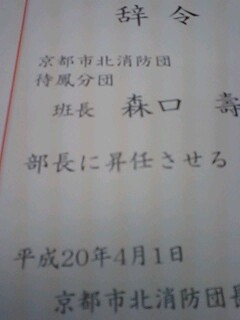 辞令
京都市北消防団
待鳳分団
班長 森口 壽
部長に昇任させる
平成20年4月1日
京都市北消防団長